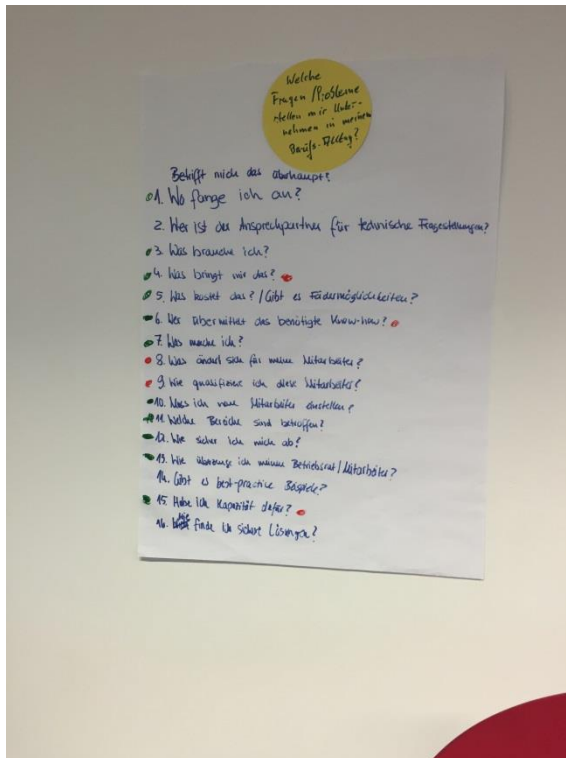 Welche
Fragen / Probleme
stellen mir Unter-
nehmen in meinem
Berufs-Alltag?
Betrifft mich das überhaupt?
1. Wo fange ich an?
2. Wer ist der Ansprechpartner für technische Fragestellungen?
3. Was brauche ich?
4. Was bringt mir das?
5. Was kostet das? / Gibt es Fördermöglichkeiten?
6. Wer übermittelt das benötigte Know-how?
7. Was mache ich?
8. Was ändert sich für meine Mitarbeiter?
9. Wie qualifiziere ich diese Mitarbeiter?
10. Muss ich neue Mitarbeiter einstellen?
11. Welche Bereiche sind betroffen?
12. Wie sicher ich mich ab?
13. Wie überzeuge ich meinen Betriebsrat / Mitarbeiter?
14. Gibt es best-practice Beispiele?
15. Habe ich Kapazität dafür?
16. Wie finde ich sichere Lösungen?